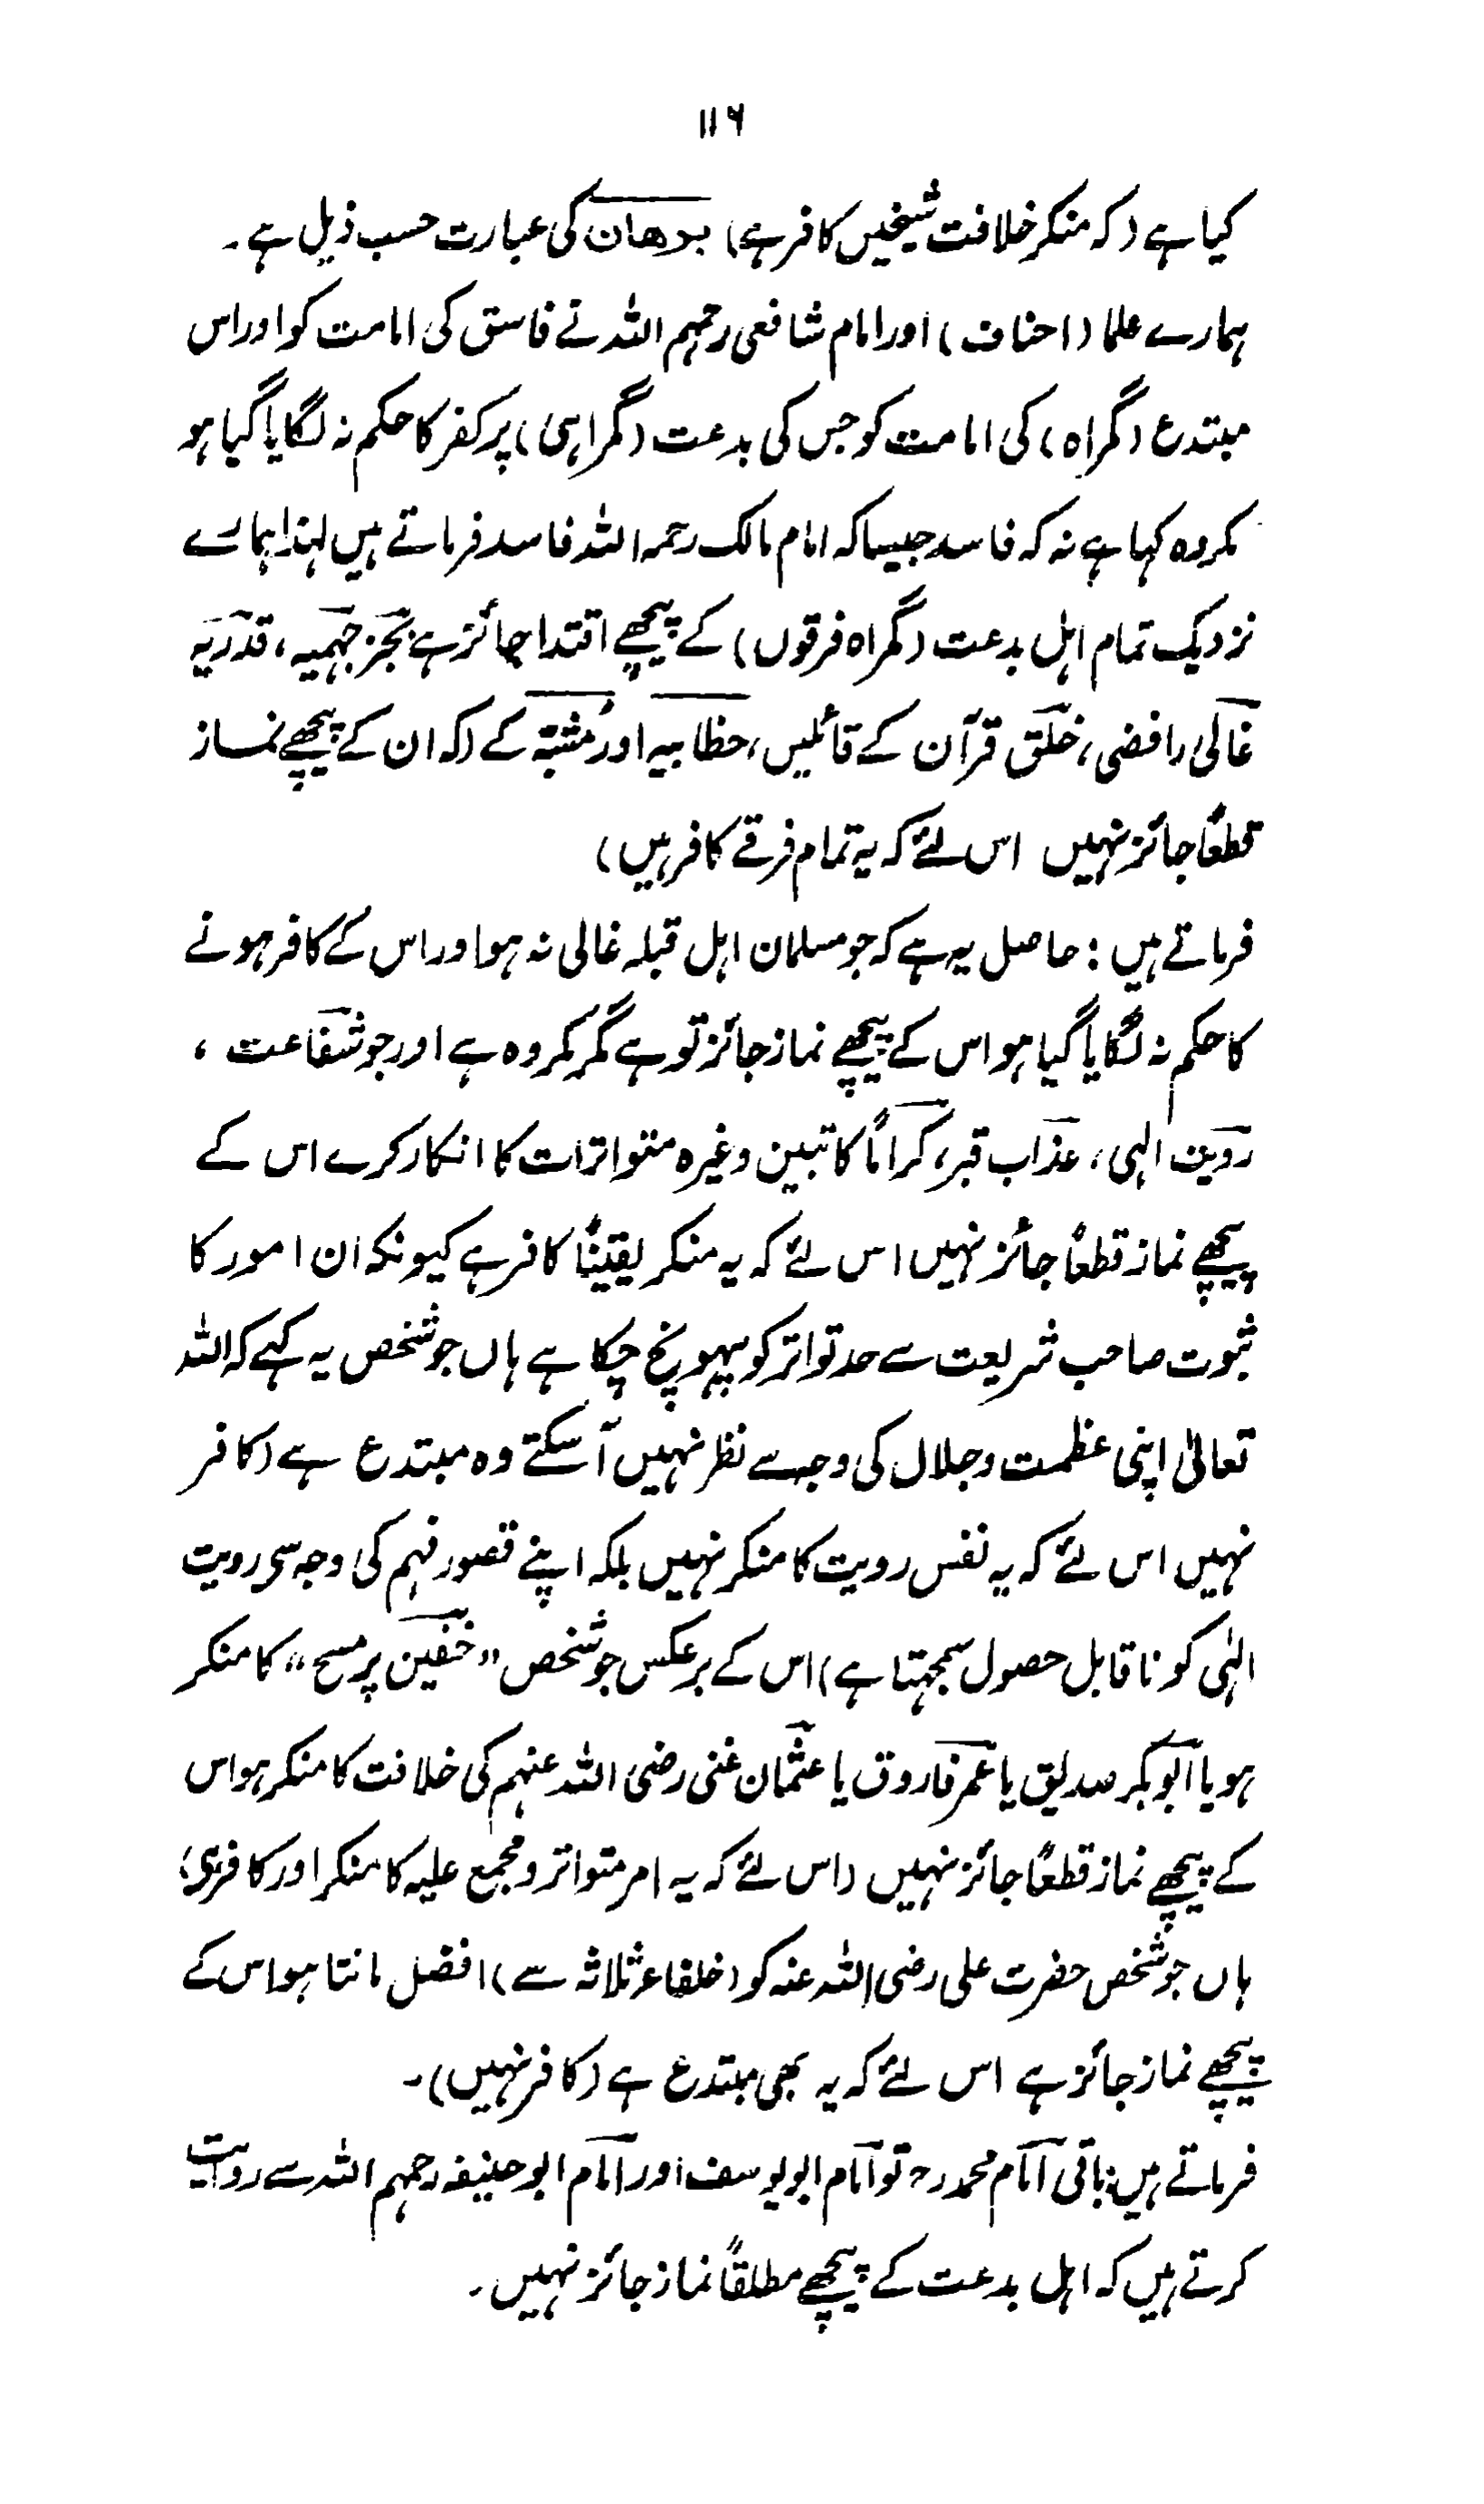 ۱۱۶
کیا ہے (کہ منکر خلافت شیخین کافر ہے) برھان کی عبارت حسب ذیل ہے۔
ہمارے علما (احناف) اور امام شافعی رحہم اللہ نے فاسق کی امامت کو اور اس
مبتدع (گمراہ) کی امامت کو جس کی بدعت (گمراہی) پر کفر کا حکم نہ لگایا گیا ہو
مکروہ کہا ہے نہ کہ فاسد جیسا کہ امام مالک رحمہ اللہ فاسد فرماتے ہیں لہٰذا ہمارے
نزدیک تمام اہل بدعت (گمراہ فرقوں) کے پیچھے اقتدا جائز ہے بجز جہمیہ، قدریہ
غالی رافضی، خلق قرآن کے قائلیں، خطابیہ اور مُشبّہ کے (کہ ان کے پیچھے نماز
قطعًا جائز نہیں اس لئے کہ یہ تمام فرقے کافر ہیں)
فرماتے ہیں: حاصل یہ ہے کہ جو مسلمان اہل قبلہ غالی نہ ہو اور اس کے کافر ہونے
کا حکم نہ لگایا گیا ہو اس کے پیچھے نماز جائز تو ہے مگر مکروہ ہے اور جو شفاعت،
رویت الٰہی، عذاب قبر، کرامًا کاتبین وغیرہ متواترات کا انکار کرے اس کے
پیچھے نماز قطعًا جائز نہیں اس لئے کہ یہ منکر یقینًا کافر ہے کیونکہ ان امور کا
ثبوت صاحب شریعت سے حد تواتر کو پہونچ چکا ہے ہاں جو شخص یہ کہے کہ اللہ
تعالیٰ اپنی عظمت و جلال کی وجہ سے نظر نہیں آسکتے وہ مبتدع ہے (کافر
نہیں اس لئے کہ یہ نفس رویت کا منکر نہیں بلکہ اپنے قصور فہم کی وجہ سی رویت
الہٰی کو ناقابل حصول سمجہتا ہے) اس کے برعکس جو شخص "خفین پر مسح" کا منکر
ہو یا ابوبکر صدیق یا عمر فاروق یا عثمان غنی رضی اللہ عنہم کی خلافت کا منکر ہو اس
کے پیچھے نماز قطعًا جائز نہیں (اس لئے کہ یہ امر متواتر و مجمع علیہ کا منکر اور کافر ہی)
ہاں جو شخص حضرت علی رضی اللہ عنہ کو (خلفاء ثلاثہ سے) افضل مانتا ہو اس کے
پیچھے نماز جائز ہے اس لئے کہ یہ بھی مبتدع ہے (کافر نہیں)۔
فرماتے ہیں: باقی امام محمد رح تو امام ابویوسف اور امام ابوحنیفہ رحمہم اللہ سے روایت
کرتے ہیں کہ اہل بدعت کے پیچھے مطلقًا نماز جائز نہیں۔